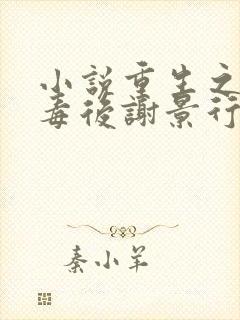 小説重生之
毒後謝景行
秦小羊